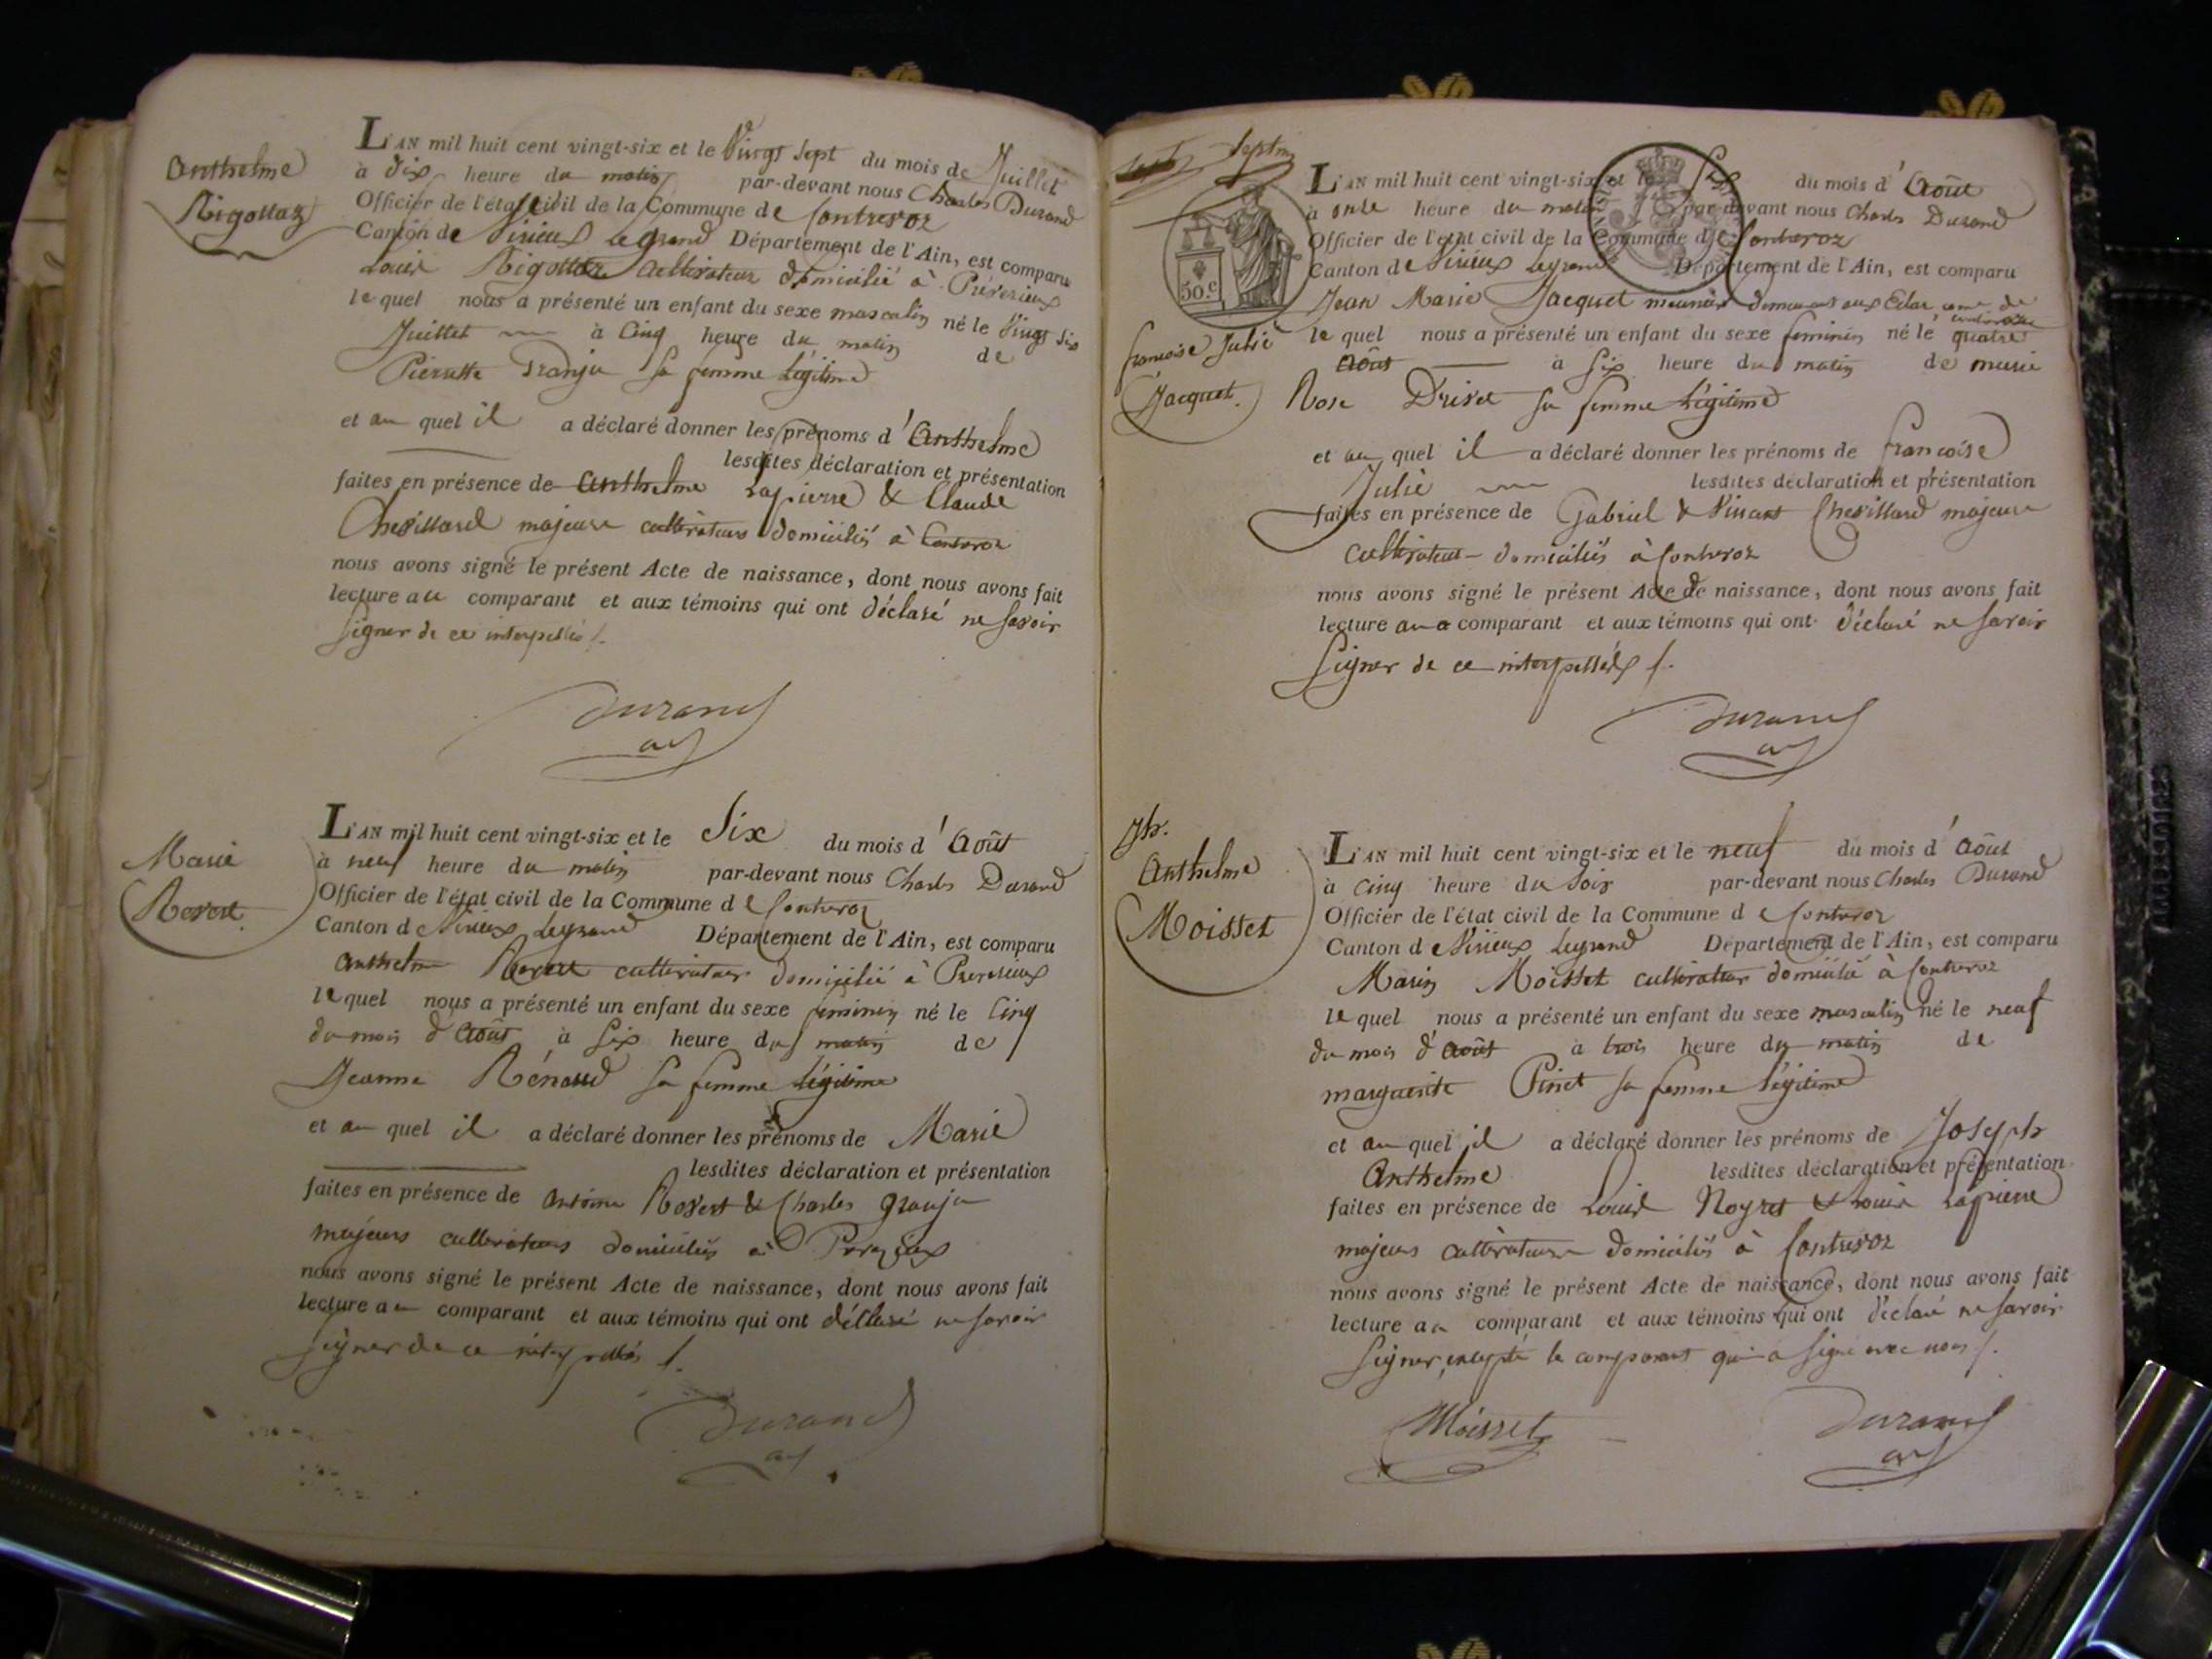 Anthelme
Rigollaz
L'AN mil huit cent vingt-six et le Vingt Sept du mois de Juillet
à dix heure du matin par-devant nous Charles Durand
Officier de l'état civil de la Commune de Contrevoz
Canton de Virieux Le grand Département de l'Ain, est comparu
Louis Rigollaz Cultivateur domicilié à
le quel nous a présenté un enfant du sexe masculin né le Vingt Six
Juillet à Cinq heure du matin de
Pierrette Granju sa femme Légitime
et au quel il a déclaré donner les prénoms d'Anthelme
lesdites déclaration et présentation
faites en présence de Anthelme Lapierre & Claude
Chevillard majeurs cultivateurs domiciliés à Contrevoz
nous avons signé le présent Acte de naissance, dont nous avons fait
lecture au comparant et aux témoins qui ont déclaré ne savoir
signer de ce interpellés /.
Durand
Marie
Revert
L'AN mil huit cent vingt-six et le Six du mois d'Août
à neuf heure du matin par-devant nous Charles Durand
Officier de l'état civil de la Commune de Contrevoz
Canton de Virieux Legrand Département de l'Ain, est comparu
Anthelme Revert cultivateur domicilié à
le quel nous a présenté un enfant du sexe feminin né le Cinq
du mois d'Août à Six heure du matin de
Jeanne Rénard sa femme Légitime
et au quel il a déclaré donner les prénoms de Marie
lesdites déclaration et présentation
faites en présence de Antoine Revert & Charles Granju
majeurs cultivateurs domiciliés à
nous avons signé le présent Acte de naissance, dont nous avons fait
lecture au comparant et aux témoins qui ont déclaré ne savoir
signer de ce interpellés /.
Durand
50.c
francoise Julie
Jacquet.
L'AN mil huit cent vingt-six et le Sept du mois d'Août
à onze heure du matin par-devant nous Charles Durand
Officier de l'état civil de la Commune de Contrevoz
Canton de Virieux Legrand Département de l'Ain, est comparu
Jean Marie Jacquet meunier
le quel nous a présenté un enfant du sexe feminin né le quatre
Août à Six heure du matin de marie
Rose Drivet sa femme Légitime
et au quel il a déclaré donner les prénoms de francoise
Julie lesdites déclaration et présentation
faites en présence de Gabriel & Vincent Chevillard majeurs
Cultivateurs domiciliés à Contrevoz
nous avons signé le présent Acte de naissance, dont nous avons fait
lecture au comparant et aux témoins qui ont déclaré ne savoir
signer de ce interpellés /.
Durand
Jh.
Anthelme
Moisset
L'AN mil huit cent vingt-six et le neuf du mois d'Août
à Cinq heure du Soir par-devant nous Charles Durand
Officier de l'état civil de la Commune de Contrevoz
Canton de Virieux Legrand Département de l'Ain, est comparu
Marin Moisset cultivateur domicilié à Contrevoz
le quel nous a présenté un enfant du sexe masculin né le neuf
du mois d'Août à trois heure du matin de
marguerite Pinet sa femme Légitime
et au quel il a déclaré donner les prénoms de Joseph
Anthelme lesdites déclaration et présentation
faites en présence de Louis Noyret & Louis Lapierre
majeurs cultivateurs domiciliés à Contrevoz
nous avons signé le présent Acte de naissance, dont nous avons fait
lecture au comparant et aux témoins qui ont déclaré ne savoir
signer, excepté le comparant qui a signé avec nous /.
Moisset Durand